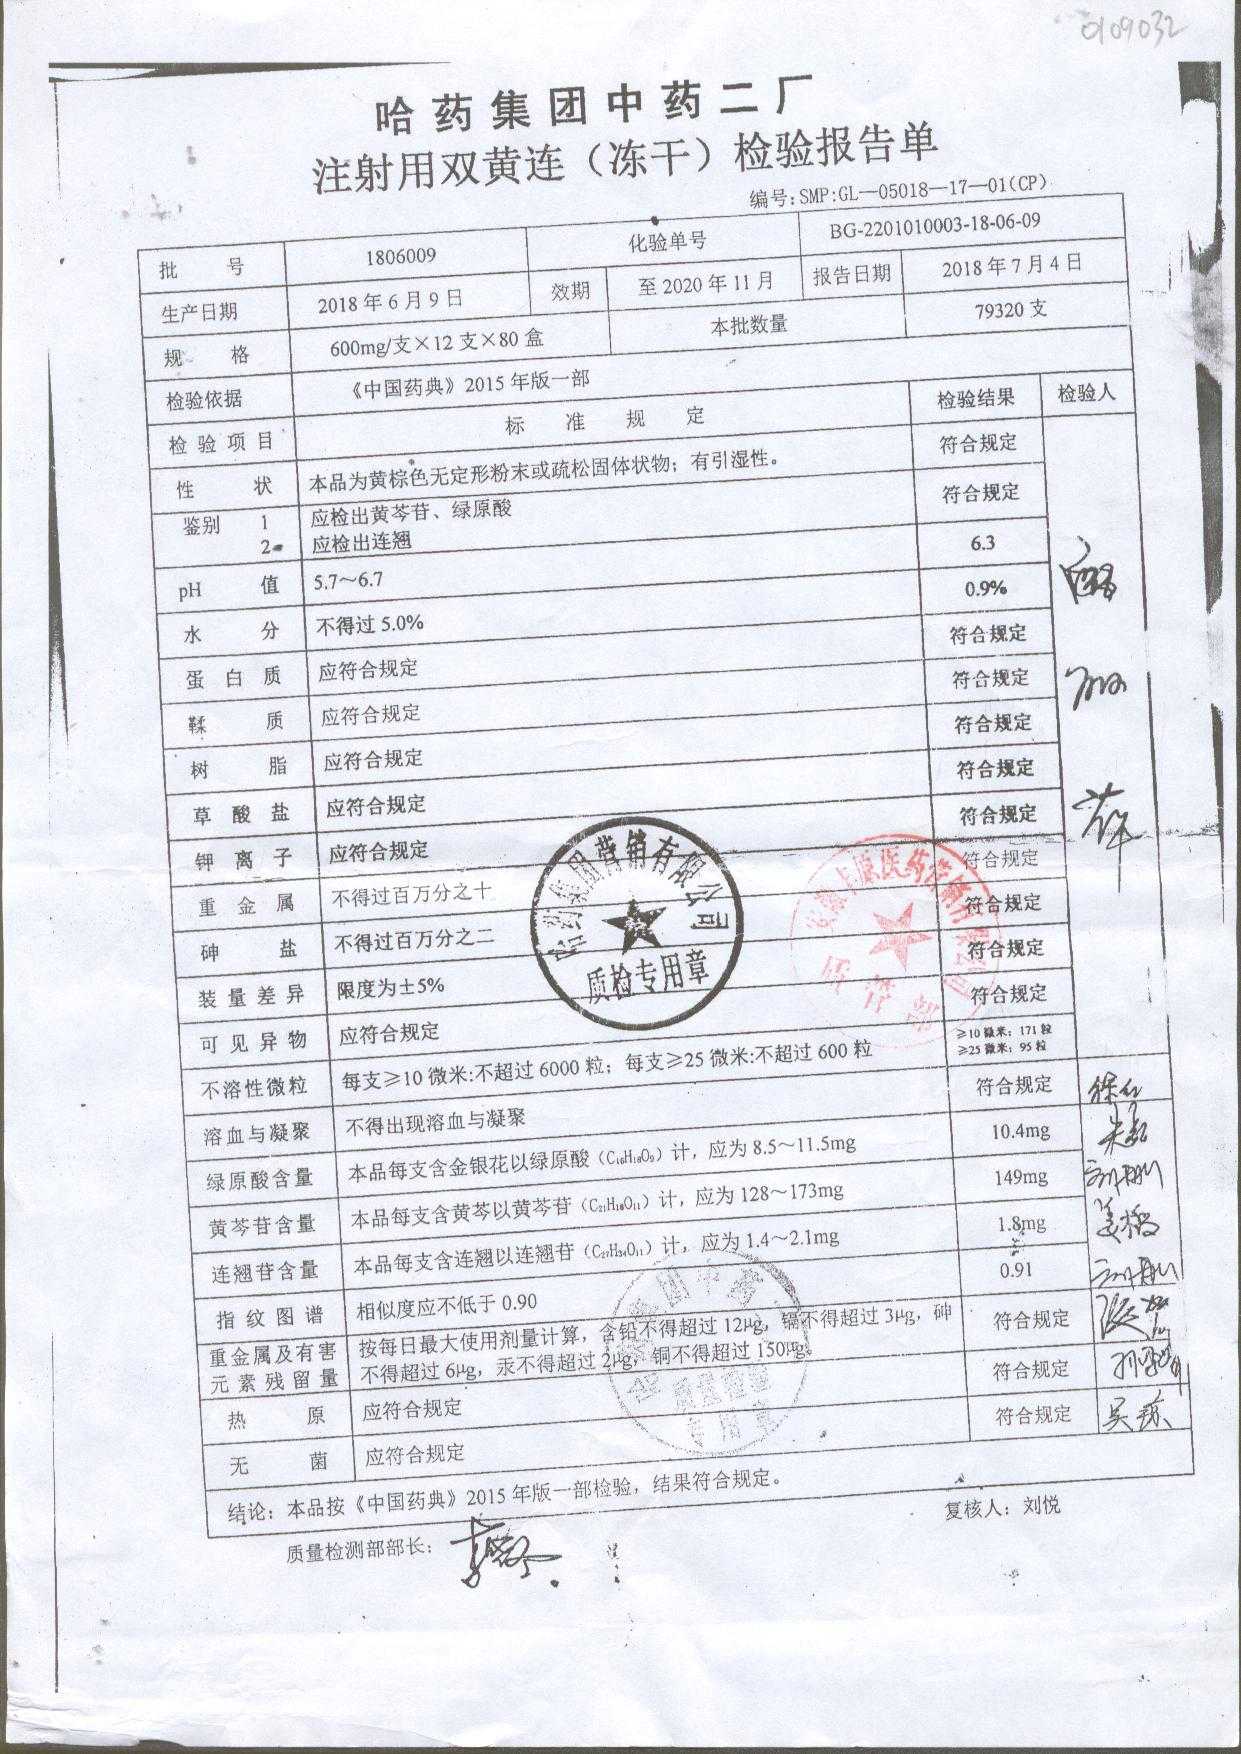 0109032
哈药集团中药二厂
注射用双黄连（冻干）检验报告单
编号：SMP:GL—05018—17—01(CP)
批 号 1806009 化验单号 BG-2201010003-18-06-09
生产日期 2018年6月9日 效期 至2020年11月 报告日期 2018年7月4日
规 格 600mg/支×12支×80盒 本批数量 79320支
检验依据 《中国药典》2015年版一部
检验项目 标 准 规 定 检验结果 检验人
性 状 本品为黄棕色无定形粉末或疏松固体状物；有引湿性。 符合规定
鉴别 1 应检出黄芩苷、绿原酸 符合规定
2 应检出连翘
pH 值 5.7～6.7 6.3
水 分 不得过5.0% 0.9%
蛋白质 应符合规定 符合规定
鞣 质 应符合规定 符合规定
树 脂 应符合规定 符合规定
草酸盐 应符合规定 符合规定
钾离子 应符合规定 符合规定
重金属 不得过百万分之十 符合规定
砷 盐 不得过百万分之二 符合规定
装量差异 限度为±5% 符合规定
可见异物 应符合规定 符合规定
不溶性微粒 每支≥10微米:不超过6000粒；每支≥25微米:不超过600粒 ≥10微米：171粒
≥25微米：95粒
溶血与凝聚 不得出现溶血与凝聚 符合规定
绿原酸含量 本品每支含金银花以绿原酸（C₁₆H₁₈O₉）计，应为8.5～11.5mg 10.4mg
黄芩苷含量 本品每支含黄芩以黄芩苷（C₂₁H₁₈O₁₁）计，应为128～173mg 149mg
连翘苷含量 本品每支含连翘以连翘苷（C₂₇H₃₄O₁₁）计，应为1.4～2.1mg 1.8mg
指纹图谱 相似度应不低于0.90 0.91
重金属及有害 按每日最大使用剂量计算，含铅不得超过12μg，镉不得超过3μg，砷 符合规定
元素残留量 不得超过6μg，汞不得超过2μg，铜不得超过150μg。
热 原 应符合规定 符合规定
无 菌 应符合规定 符合规定
结论：本品按《中国药典》2015年版一部检验，结果符合规定。
质量检测部部长： 复核人：刘悦
哈药集团营销有限公司
质检专用章
质管部
专用章